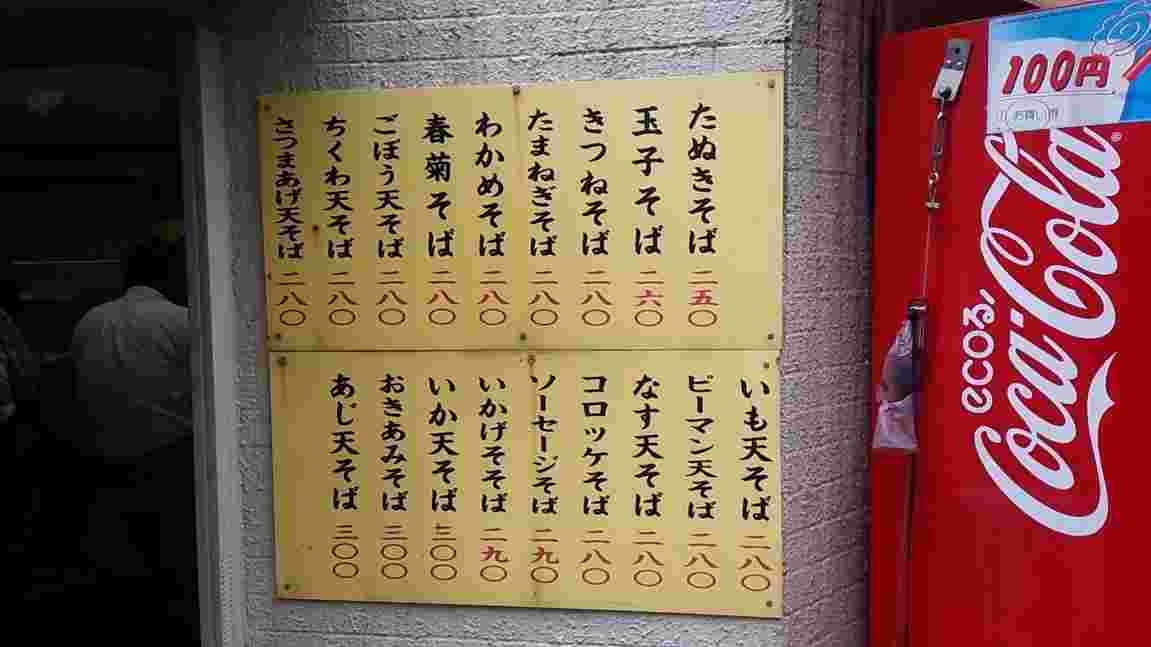 たぬきそば 二五〇
玉子そば 二六〇
きつねそば 二八〇
たまねぎそば 二八〇
わかめそば 二八〇
春菊そば 二八〇
ごぼう天そば 二八〇
ちくわ天そば 二八〇
さつまあげ天そば 二八〇
いも天そば 二八〇
ピーマン天そば 二八〇
なす天そば 二八〇
コロッケそば 二八〇
ソーセージそば 二九〇
いかげそそば 二九〇
いか天そば 三〇〇
おきあみそば 三〇〇
あじ天そば 三〇〇
100円
お買い得
ecoる/
Coca-Cola®